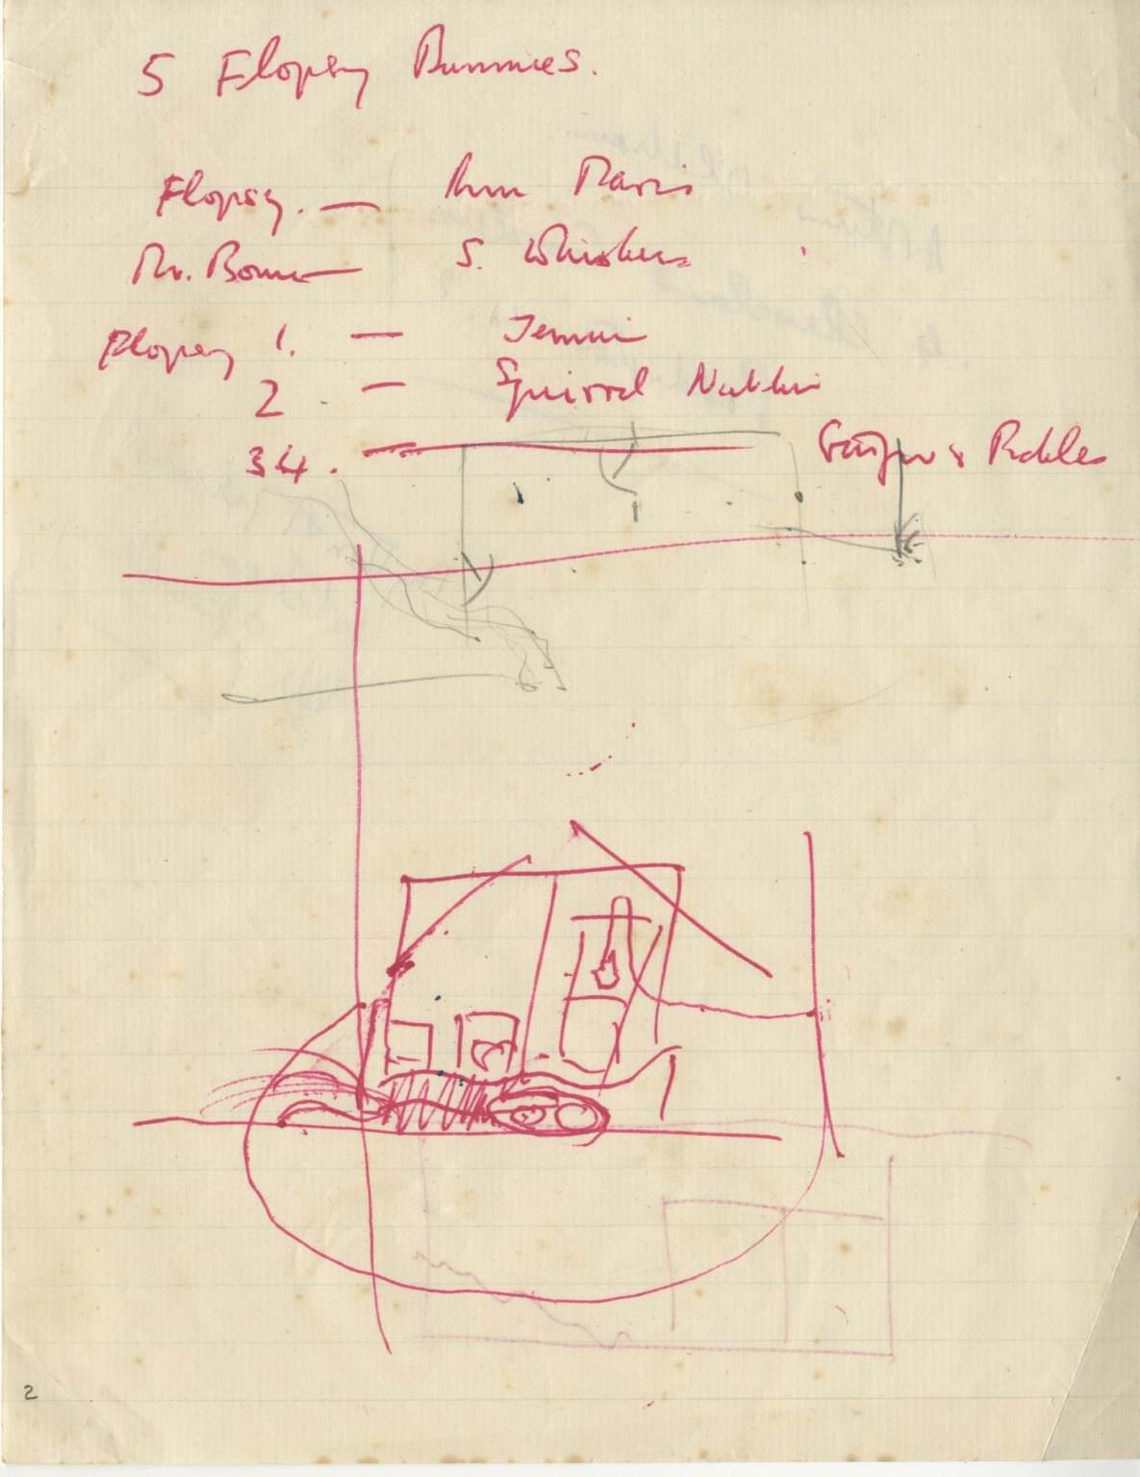 5 Flopsy Bunnies.
Flopsy. —
Mr. — S. Whiskers
Flopsy 1. — Jemima
2 — Squirrel Nutkin
3 4. — Ginger & Pickles
2